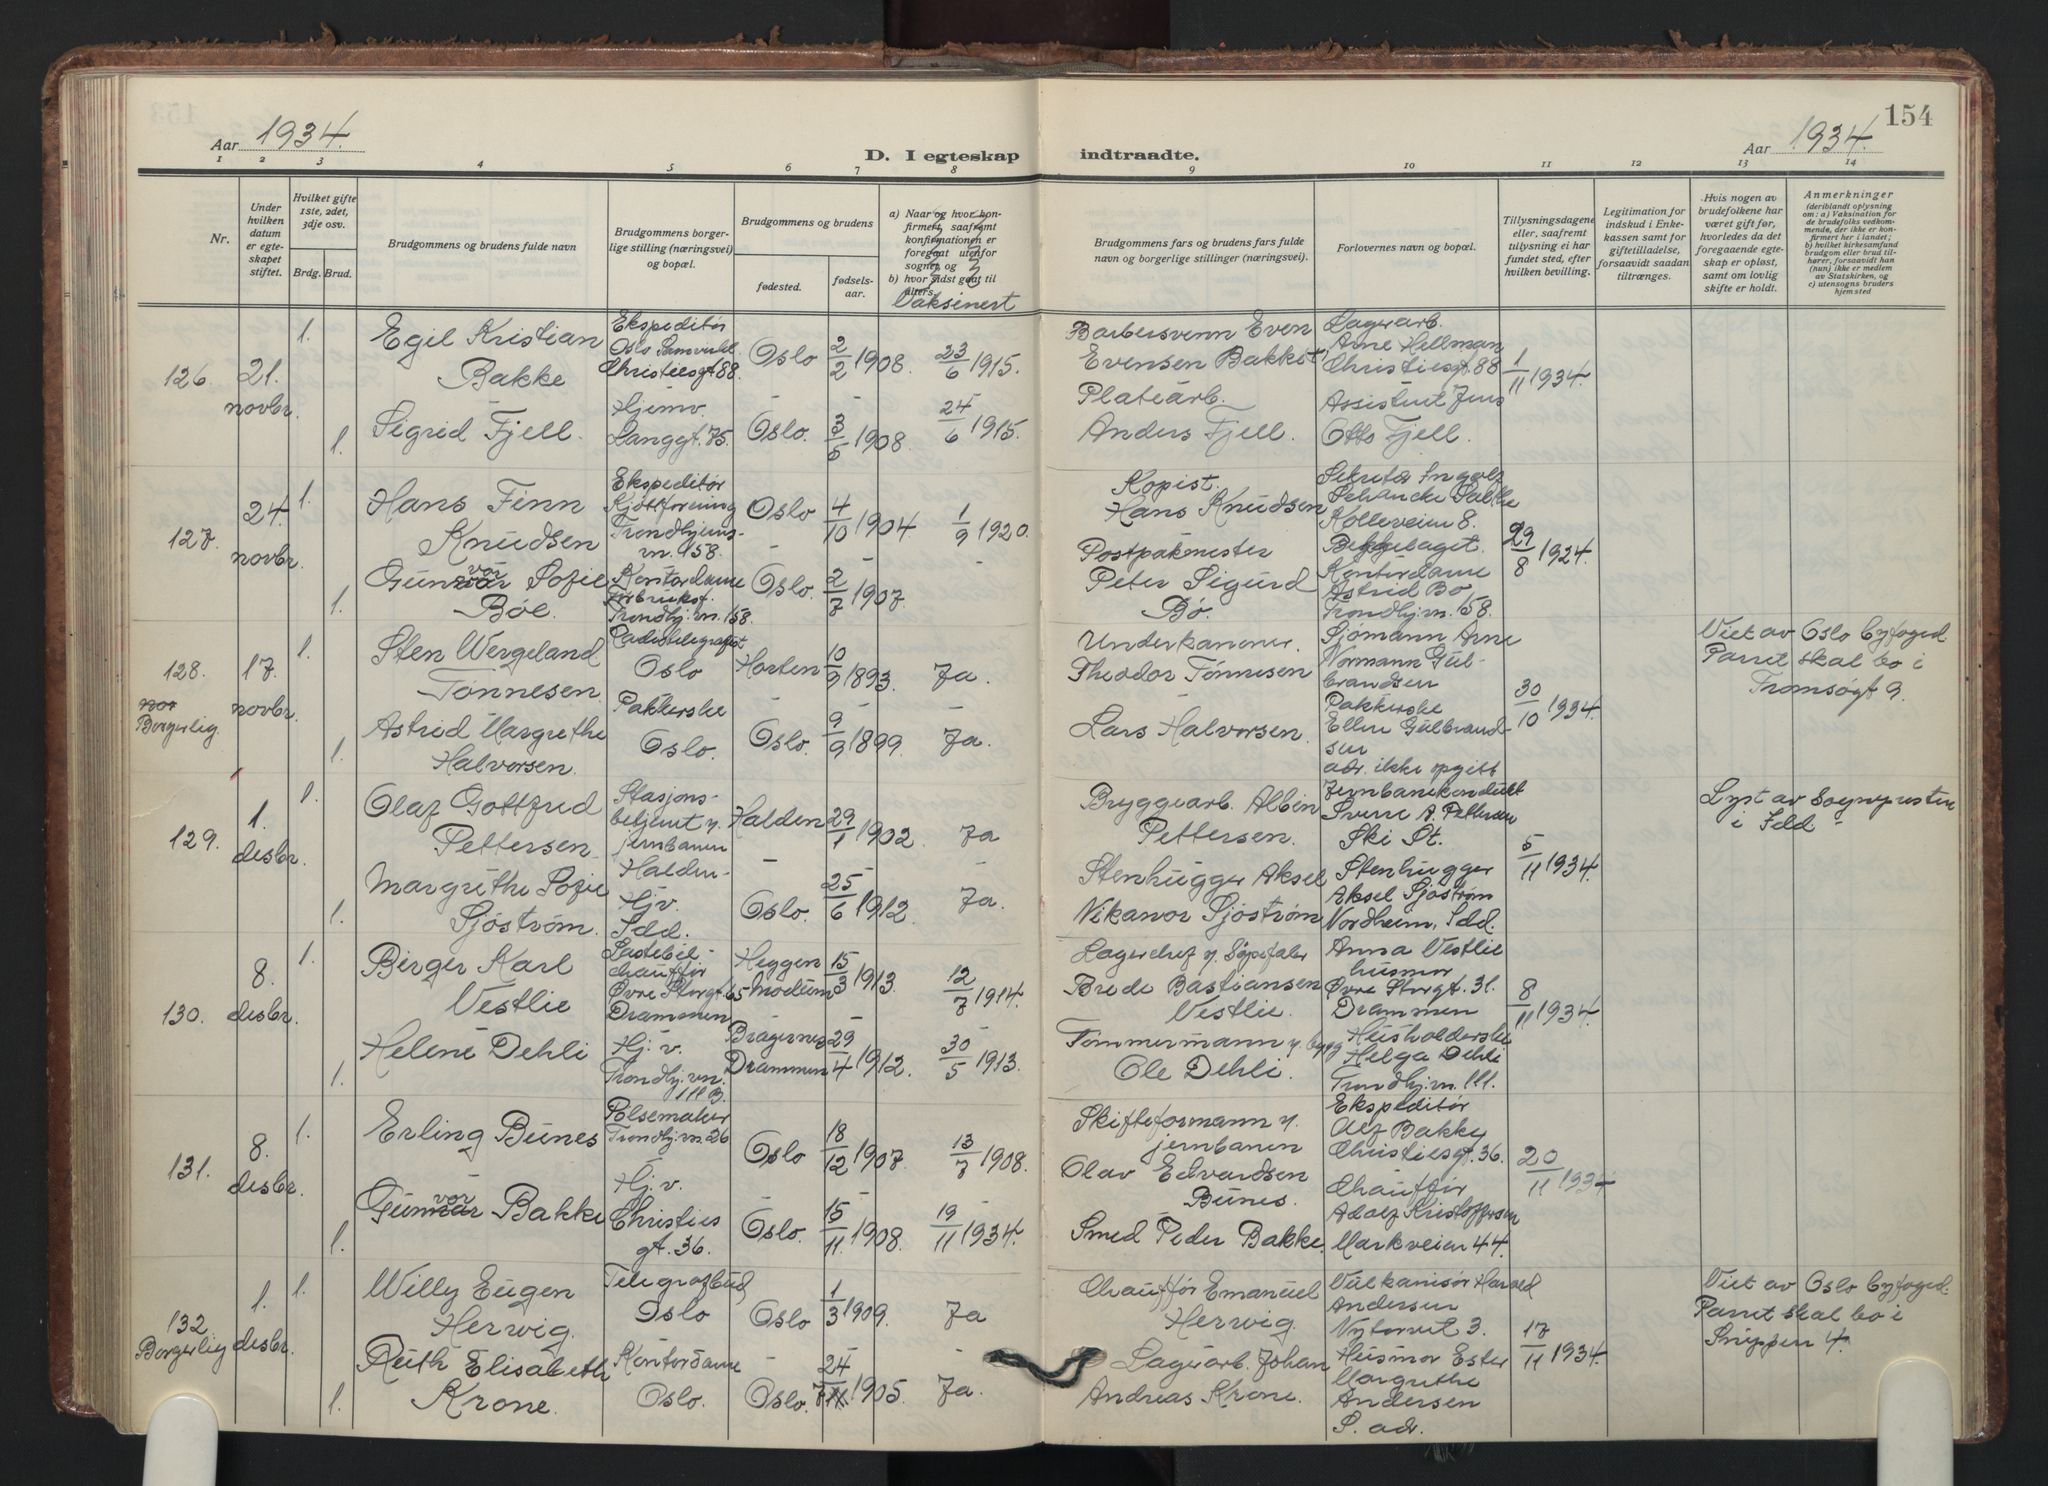 153
154
Aar 1934.
D. I egteskap
indtraadte.
Aar 1934.
1 2 3 4 5 6 7 8 9 10 11 12 13 14
Nr.
Under hvilken datum er egteskapet stiftet.
Hvilket gifte 1ste, 2det, 3dje osv.
Brdg. Brud.
Brudgommens og brudens fulde navn
Brudgommens borgerlige stilling (næringsvei) og bopæl.
Brudgommens og brudens
fødested.
fødselsaar.
a) Naar og hvor konfirmert, saafremt konfirmationen er foregaat utenfor sognet, og
b) hvor sidst gaat til alters.
Vaksinert
Brudgommens fars og brudens fars fulde navn og borgerlige stillinger (næringsvei).
Forlovernes navn og bopæl.
Tillysningsdagene eller, saafremt tillysning ei har fundet sted, efter hvilken bevilling.
Legitimation for indskud i Enkekassen samt for giftetilladelse, forsaavidt saadan tiltrænges.
Hvis nogen av brudefolkene har været gift før, hvorledes da det foregaaende egteskap er opløst, samt om lovlig skifte er holdt.
Anmerkninger
(deriblandt oplysning om: a) Vaksination for de brudefolks vedkommende, der ikke er konfirmert her i landet; b) hvilket kirkesamfund brudgom eller brud tilhører, forsaavidt han (hun) ikke er medlem av Statskirken, og c) utensogns bruders hjemsted
126. 21. novbr.
1. Egil Kristian Bakke
Ekspeditør
Oslo Samvirkel.
Christiesgt. 88.
Oslo 2/2 1908. 23/6 1915.
Barbersvenn Even
Evensen Bakkst.
Lagerarb.
Arne Hellman
Christiesgt. 88
1/11 1934.
1. Sigrid Fjell.
Hjemv.
Langgt. 75.
Oslo. 3/5 1908 24/6 1915.
Platearb.
Anders Fjell.
Assistent Jens
Otto Fjell.
127. 24. novbr.
1. Hans Finn Knudsen
Ekspeditør
Kjøttforening
Trondhjems-
vn. 158.
Oslo 4/10 1904 1/9 1920.
Kopist.
Hans Knudsen
Sekretær Ingolf
Schancke
Kolleveien 8.
Bekkelaget.
29/8 1924.
1. Gunvor Sofie Böe
Kontordame
Trondhj. vn. 158.
Oslo. 2/7 1907.
Postpakmester
Peter Sigurd
Bø.
Kontordame
Astrid Bø
Trondhj. vn. 158.
128. Borgerlig. 17. novbr.
1. Sten Wergeland Tønnesen
Radiotelegrafist
Oslo
Horten 10/9 1893. Ja.
Underkanoner.
Theodor Tønnesen
Sjømann Arne
Normann Gul-
brandsen
30/10 1934.
Viet av Oslo byfoged
Parret skal bo i
Tromsøgt 9.
1. Astrid Margrethe Halvorsen.
Pakkerske
Oslo.
Oslo. 9/9 1899. Ja.
Lars Halvorsen.
Pakkerske
Ellen Gulbrand-
sen
adr. ikke opgitt
129. 1. desbr.
1. Olaf Gottfred Pettersen.
Stasjons-
betjent v.
jernbanen
Halden
Halden 29/1 1902. Ja
Bryggearb. Albin
Pettersen.
Jernbanekondukt
Sverre A. Pettersen
Ski St.
5/11 1934.
Lyst av Sognepresten
i Idd
1. Margrethe Sofie Sjöström.
Hjv.
Idd.
Oslo. 25/6 1912. Ja.
Stenhugger Aksel
Nikanor Sjöström
Stenhugger
Aksel Sjöström
Nordheim, Idd.
130. 8. desbr.
1. Birger Karl Vestlie
Lastebil-
chauffør
Øvre Storgt. 65
Drammen
Heggen
Modum 15/3 1913. 12/7 1914.
Lagerchef v.
Brede Bastiansen
Vestlie.
Anna Vestlie
husmor
Øvre Storgt. 31.
Drammen
8/11 1934.
1. Helene Dehli
Hj. v.
Trondhj. vn.
111 B.
Bragernes
Drammen 29/4 1912. 30/5 1913.
Tømmermann v. bygg
Ole Dehli.
Husholderske
Helga Dehli
Trondhj. vn. 111.
131. 8. desbr.
1. Erling Bunes
Pølsemaker
Trondhj. vn. 26
Oslo 18/12 1907. 13/7 1908.
Skifteformann v.
jernbanen
Olav Edvardsen
Bunes.
Ekspeditør
Alf Bakke
Christiesgt. 36.
20/11 1934
1. Gunvor Bakke
Hj. v.
Christies
gt. 36.
Oslo. 15/11 1908. 19/11 1934.
Smed Peder Bakke.
Chauffør
Adolf Kristoffersen
Markveien 44.
132 Borgerlig 1. desbr.
1. Willy Eugen Herwig.
Telegrafbud
Oslo
Oslo 1/3 1909. Ja
Chauffør Emanuel
Herwig.
Vulkanisør Harald
Andersen
Nytorvet 3.
17/11 1934.
Viet av Oslo byfoged.
Parret skal bo i
Snippen 4.
1. Ruth Elisabeth Krone.
Kontordame
Oslo.
Oslo. 24/ 1905. Ja.
Lagerarb. Johan
Andreas Krone.
Husmor Ester
Margrethe
Andersen
S. adr.